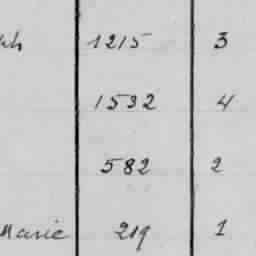 1215 3
1532 4
582 2
Marie 219 1